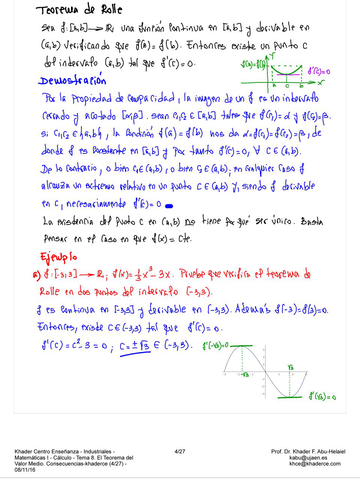 Teorema de Rolle
Sea f:[a,b] → R, una función continua en [a,b] y derivable en
(a,b) verificando que f(a)=f(b). Entonces existe un punto C
del intervalo (a,b) tal que f'(C)=0.
f(a)=f(b)
Y
f'(C)=0
a
b
X
Demostración
Por la propiedad de compacidad, la imagen de un f es un intervalo
cerrado y acotado [α,β]. Sean C₁,C₂ ∈ [a,b] tales que f(C₁)=α y f(C₂)=β.
Si C₁,C₂ ∈ {a,b}, la condición f(a)=f(b) nos da α=f(C₁)=f(C₂)=β, de
donde f es constante en [a,b] y por tanto f'(C)=0, ∀ C∈(a,b).
De lo contrario, o bien C₁∈(a,b), o bien C₂∈(a,b), en cualquier caso f
alcanza un extremo relativo en un punto C∈(a,b) y, siendo f derivable
en C, necesariamente f'(C)=0
La existencia del punto C en (a,b) no tiene por qué ser único. Basta
pensar en el caso en que f(x)=cte.
Ejemplo
a) f:[-3,3] → R; f(x)=⅓x³-3x. Pruebe que verifica el teorema de
Rolle en dos puntos del intervalo (-3,3).
f es continua en [-3,3] y derivable en (-3,3). Además f(-3)=f(3)=0.
Entonces, existe C∈(-3,3) tal que f'(C)=0.
f'(C)=C²-3=0; C=±√3 ∈ (-3,3).
f'(-√3)=0
-√3
√3
f'(√3)=0
Khader Centro Enseñanza - Industriales -
Matemáticas I - Cálculo - Tema 8. El Teorema del
Valor Medio. Consecuencias-khaderce (4/27) -
08/11/16
4/27
Prof. Dr. Khader F. Abu-Helaiel
kabu@ujaen.es
khce@khaderce.com